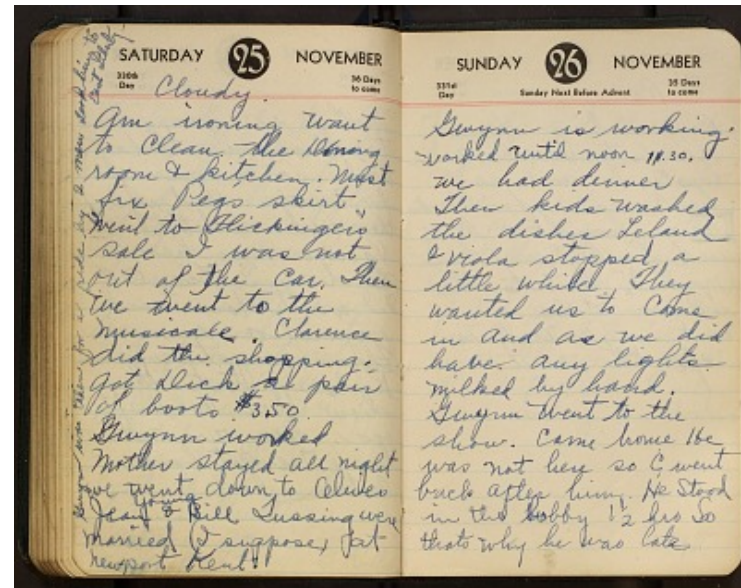 SATURDAY 25 NOVEMBER
330th Day
36 Days to come
Cloudy.
Am ironing want
to clean the Dining
room & kitchen. Must
fix Peg's skirt
Went to Flickinger's
sale I was not
out of the car. Then
we went to the
musicale. Clarence
did the shopping.
got Dick a pair
of boots $3.50
Gwynn worked
Mother stayed all night
we went down to
Jean & Bill Lussing were
married (I suppose) at
newport Kent.
for a ride by 2 men took him to
SUNDAY 26 NOVEMBER
331st Day
Sunday Next Before Advent
35 Days to come
Gwynn is working.
worked until noon 11.30.
we had dinner
Then kids washed
the dishes Leland
& Viola stopped a
little while. They
wanted us to come
in and as we did
have any lights
milked by hand.
Gwynn went to the
show. Came home He
was not here so C went
back after him. He stood
in the lobby 1/2 hrs So
thats why he was late